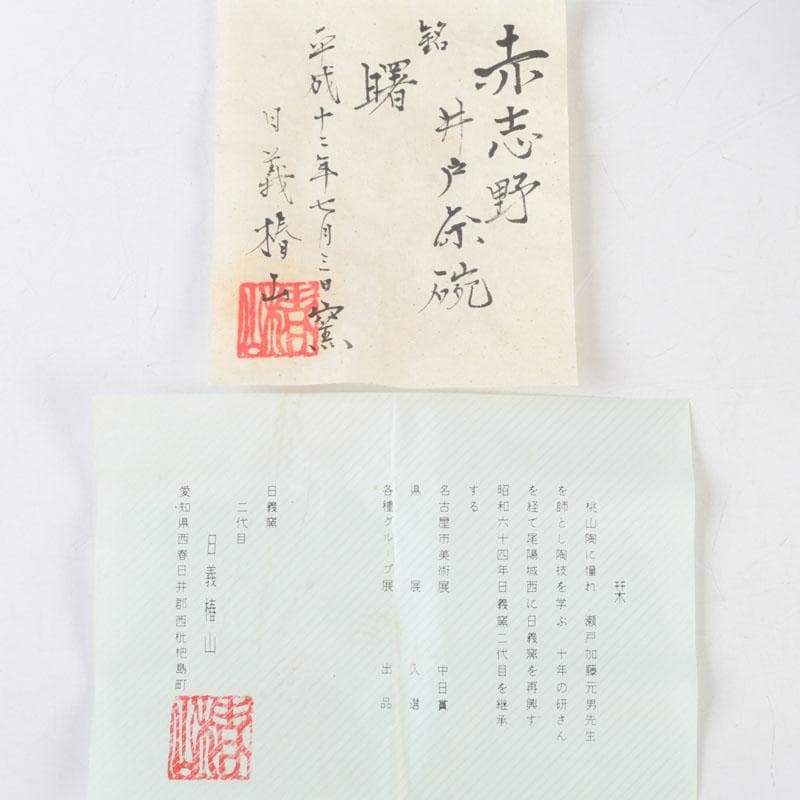 赤志野
井戸茶碗
銘
曙
平成十二年七月三日窯
日義椿山
栞
桃山陶に憧れ 瀬戸加藤元男先生
を師とし陶技を学ぶ 十年の研さん
を経て尾陽城西に日義窯を再興す
昭和六十四年日義窯二代目を継承
する
名古屋市美術展 中日賞
県展 入選
各種グループ展 出品
日義窯
二代目
日義椿山
愛知県西春日井郡西枇杷島町